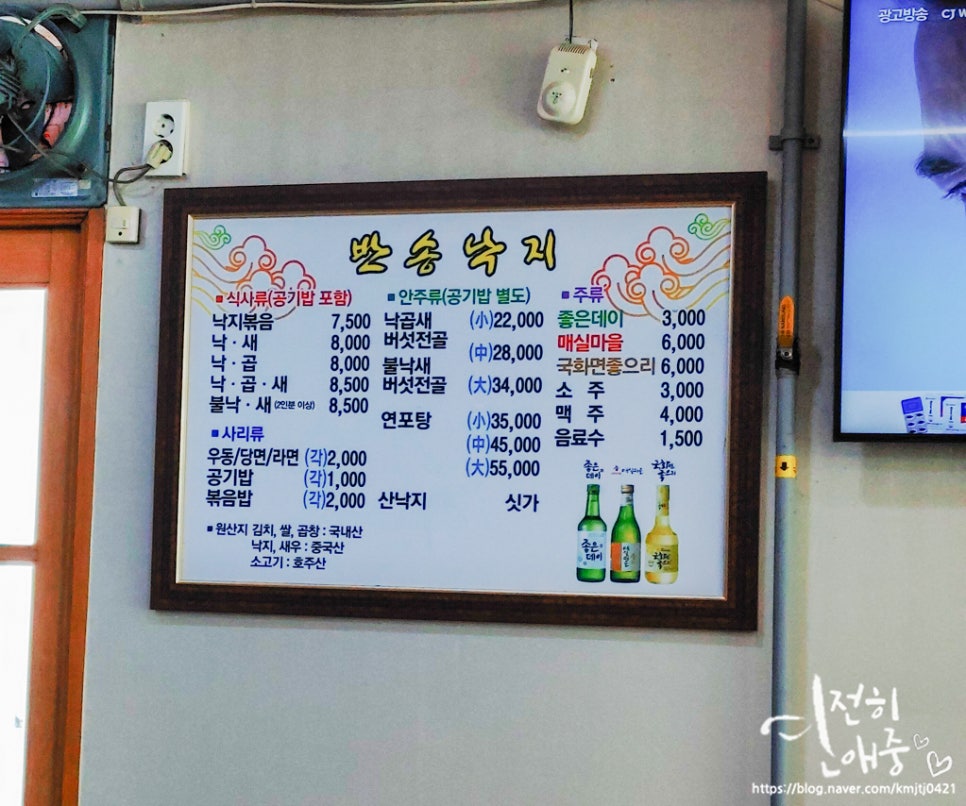 광고방송 CJ
반송낙지
■ 식사류(공기밥 포함)
낙지볶음 7,500
낙·새 8,000
낙·곱 8,000
낙·곱·새 8,500
불낙·새 (2인분 이상) 8,500
■ 사리류
우동/당면/라면 (각)2,000
공기밥 (각)1,000
볶음밥 (각)2,000
■ 원산지 김치, 쌀, 곱창 : 국내산
낙지, 새우 : 중국산
소고기 : 호주산
■ 안주류(공기밥 별도)
낙곱새 (小)22,000
버섯전골
(中)28,000
불낙새
버섯전골 (大)34,000
연포탕 (小)35,000
(中)45,000
(大)55,000
산낙지 싯가
■ 주류
좋은데이 3,000
매실마을 6,000
국화면좋으리 6,000
소 주 3,000
맥 주 4,000
음료수 1,500
좋은데이
좋은데이
여전히
연애중
https://blog.naver.com/kmjtj0421